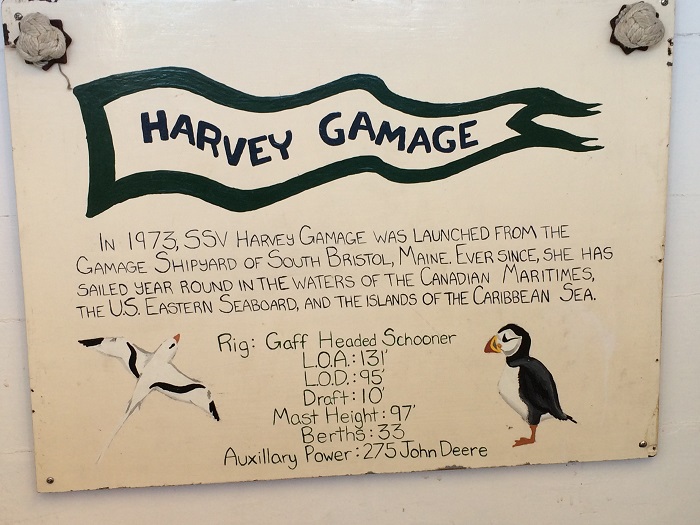 HARVEY GAMAGE
IN 1973, SSV HARVEY GAMAGE WAS LAUNCHED FROM THE
GAMAGE SHIPYARD OF SOUTH BRISTOL, MAINE. EVER SINCE, SHE HAS
SAILED YEAR ROUND IN THE WATERS OF THE CANADIAN MARITIMES,
THE U.S. EASTERN SEABOARD, AND THE ISLANDS OF THE CARIBBEAN SEA.
Rig: Gaff Headed Schooner
L.O.A.: 131'
L.O.D.: 95'
Draft: 10'
Mast Height: 97'
Berths: 33
Auxillary Power: 275 John Deere